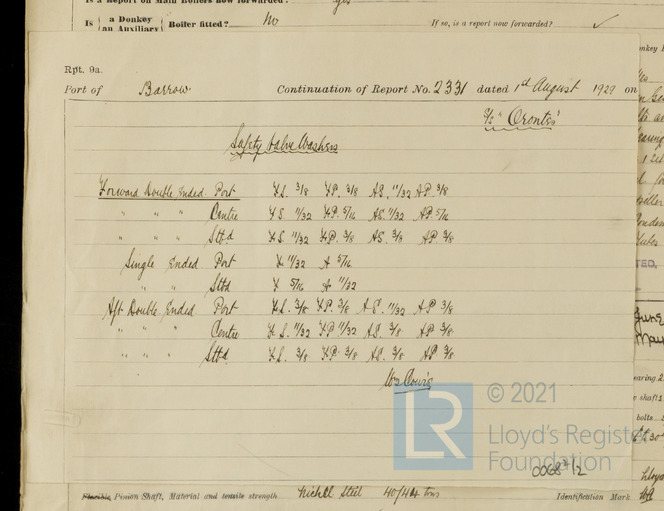 Is a Report on Main Boilers now forwarded? yes
Is { a Donkey / an Auxiliary } Boiler fitted? No If so, is a report now forwarded? ✓
Rpt. 9a.
Port of Barrow Continuation of Report No. 2331 dated 1st August 1929 on
S/S "Orontes"
Safety Valve Washers
Forward Double Ended Port F.S. 3/8 F.P. 3/8 A.S. 11/32 A.P. 3/8
" " " Centre F.S. 11/32 F.P. 5/16 A.S. 11/32 A.P. 5/16
" " " Stbd F.S. 11/32 F.P. 3/8 A.S. 3/8 A.P. 3/8
Single Ended Port F 11/32 A 5/16
" " Stbd F 5/16 A 11/32
Aft Double Ended Port F.S. 3/8 F.P. 3/8 A.S. 11/32 A.P. 3/8
" " " Centre F.S. 11/32 F.P. 11/32 A.S. 3/8 A.P. 3/8
" " " Stbd F.S. 3/8 F.P. 3/8 A.S. 3/8 A.P. 3/8
Wm
LR © 2021
Lloyd's Register
Foundation
Flexible Pinion Shaft, Material and tensile strength Nickel Steel 40/44 tons Identification Mark